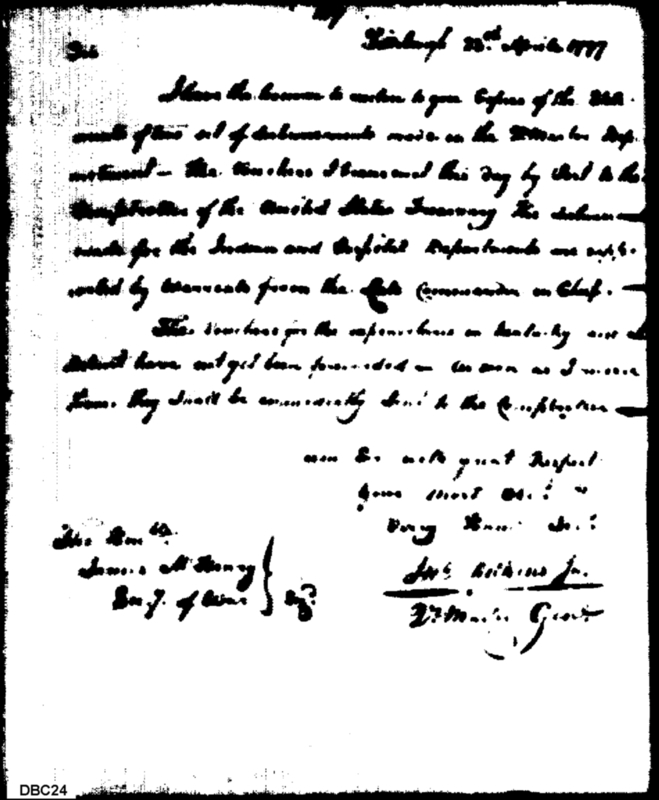 Sir
Pittsburgh 22nd April 1797
I have the honour to enclose to you Copies of the State
ments of two set of disbursements made in the Qr Master Dep
artment — The Vouchers I transmit this day by Post to the
Comptroller of the United States Treasury The disburse
made for the Indian and Hospital Departments are supp
orted by Warrants from the Late Commander in Chief.
The Vouchers for the expenditures in Kentucky and at
Detroit have not yet been forwarded — as soon as I receive
them they shall be immediately sent to the Comptroller
with great Respect
Your most Obt
Very Hume Sert
The Honble
James McHenry
Secy. of War } Esqr.
Jno Wilkins Jr.
Qr Master Genl
DBC24